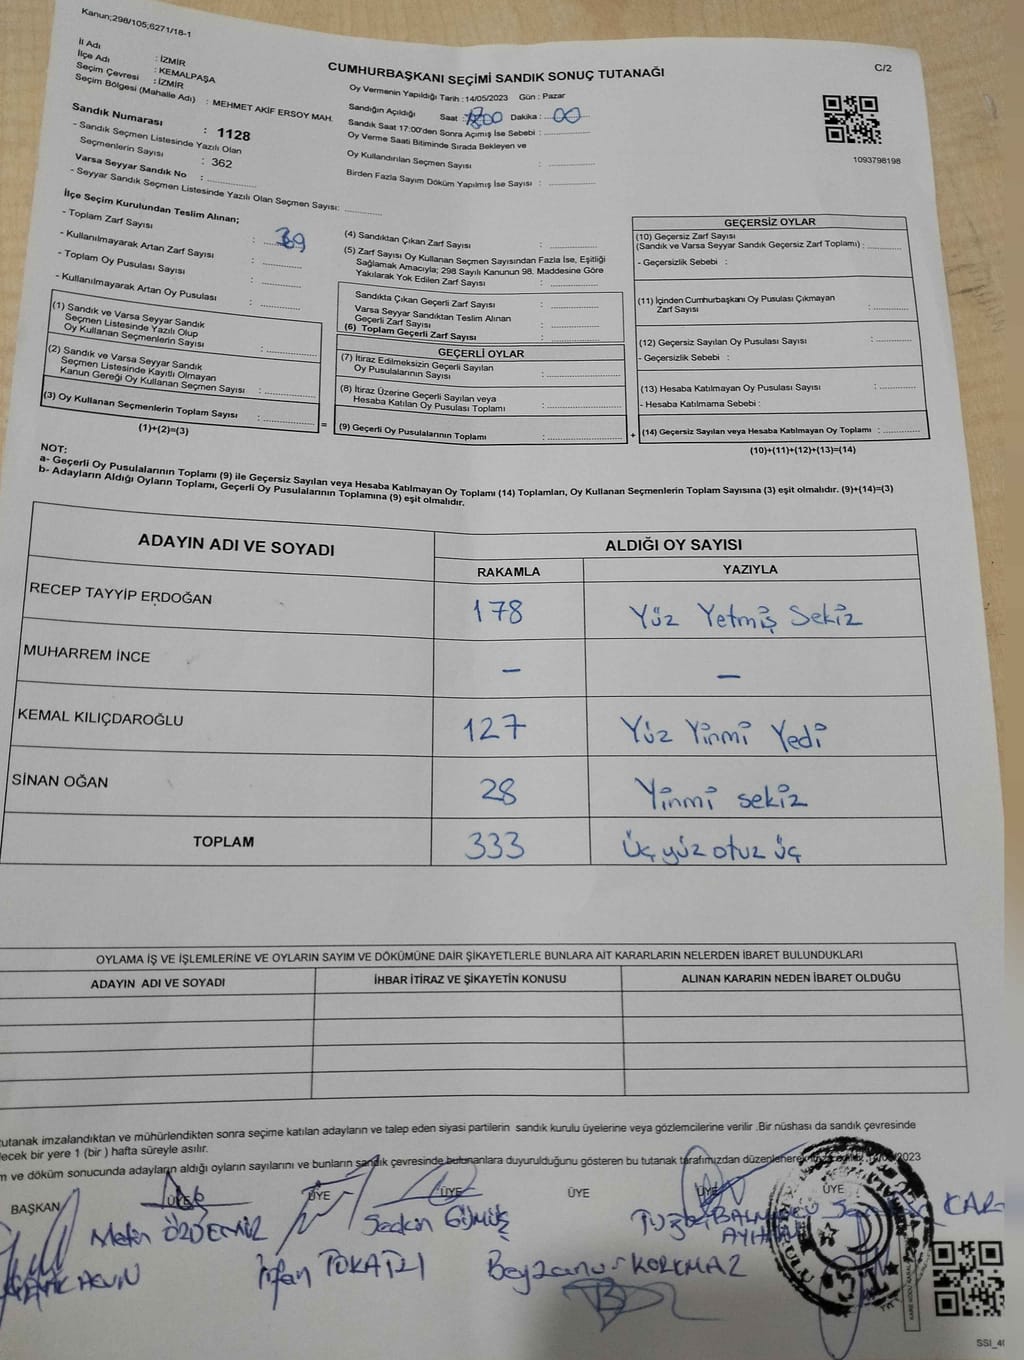 Kanun;298/105;6271/18-1
C/2
CUMHURBAŞKANI SEÇİMİ SANDIK SONUÇ TUTANAĞI
İl Adı : İZMİR
İlçe Adı : KEMALPAŞA
Seçim Çevresi : İZMİR
Seçim Bölgesi (Mahalle Adı) : MEHMET AKİF ERSOY MAH.
Sandık Numarası : 1128
- Sandık Seçmen Listesinde Yazılı Olan
Seçmenlerin Sayısı : 362
Varsa Seyyar Sandık No :
- Seyyar Sandık Seçmen Listesinde Yazılı Olan Seçmen Sayısı:
Oy Vermenin Yapıldığı Tarih : 14/05/2023 Gün : Pazar
Sandığın Açıldığı Saat : Dakika : 00
Sandık Saat 17:00'den Sonra Açmış İse Sebebi :
Oy Verme Saati Bitiminde Sırada Bekleyen ve
Oy Kullandırılan Seçmen Sayısı :
Birden Fazla Sayım Döküm Yapılmış İse Sayısı :
1093798198
İlçe Seçim Kurulundan Teslim Alınan;
- Toplam Zarf Sayısı :
- Kullanılmayarak Artan Zarf Sayısı :
- Toplam Oy Pusulası Sayısı :
- Kullanılmayarak Artan Oy Pusulası :
(1) Sandık ve Varsa Seyyar Sandık
Seçmen Listesinde Yazılı Olup
Oy Kullanan Seçmenlerin Sayısı :
(2) Sandık ve Varsa Seyyar Sandık
Seçmen Listesinde Kayıtlı Olmayan
Kanun Gereği Oy Kullanan Seçmen Sayısı :
(3) Oy Kullanan Seçmenlerin Toplam Sayısı :
(1)+(2)=(3)
=
(4) Sandıktan Çıkan Zarf Sayısı :
(5) Zarf Sayısı Oy Kullanan Seçmen Sayısından Fazla İse, Eşitliği
Sağlamak Amacıyla; 298 Sayılı Kanunun 98. Maddesine Göre
Yakılarak Yok Edilen Zarf Sayısı :
Sandıkta Çıkan Geçerli Zarf Sayısı :
Varsa Seyyar Sandıktan Teslim Alınan
Geçerli Zarf Sayısı :
(6) Toplam Geçerli Zarf Sayısı :
GEÇERLİ OYLAR
(7) İtiraz Edilmeksizin Geçerli Sayılan
Oy Pusulalarının Sayısı :
(8) İtiraz Üzerine Geçerli Sayılan veya
Hesaba Katılan Oy Pusulası Toplamı :
(9) Geçerli Oy Pusulalarının Toplamı :
+
GEÇERSİZ OYLAR
(10) Geçersiz Zarf Sayısı
(Sandık ve Varsa Seyyar Sandık Geçersiz Zarf Toplamı) :
- Geçersizlik Sebebi :
(11) İçinden Cumhurbaşkanı Oy Pusulası Çıkmayan
Zarf Sayısı :
(12) Geçersiz Sayılan Oy Pusulası Sayısı :
- Geçersizlik Sebebi :
(13) Hesaba Katılmayan Oy Pusulası Sayısı :
- Hesaba Katılmama Sebebi :
(14) Geçersiz Sayılan veya Hesaba Katılmayan Oy Toplamı :
(10)+(11)+(12)+(13)=(14)
NOT:
a- Geçerli Oy Pusulalarının Toplamı (9) ile Geçersiz Sayılan veya Hesaba Katılmayan Oy Toplamı (14) Toplamları, Oy Kullanan Seçmenlerin Toplam Sayısına (3) eşit olmalıdır. (9)+(14)=(3)
b- Adayların Aldığı Oyların Toplamı, Geçerli Oy Pusulalarının Toplamına (9) eşit olmalıdır.
ADAYIN ADI VE SOYADI
ALDIĞI OY SAYISI
RAKAMLA YAZIYLA
RECEP TAYYİP ERDOĞAN 178 Yüz Yetmiş Sekiz
MUHARREM İNCE - -
KEMAL KILIÇDAROĞLU 127 Yüz Yirmi Yedi
SİNAN OĞAN 28 Yirmi sekiz
TOPLAM 333 Üç yüz otuz üç
OYLAMA İŞ VE İŞLEMLERİNE VE OYLARIN SAYIM VE DÖKÜMÜNE DAİR ŞİKAYETLERLE BUNLARA AİT KARARLARIN NELERDEN İBARET BULUNDUKLARI
ADAYIN ADI VE SOYADI İHBAR İTİRAZ VE ŞİKAYETİN KONUSU ALINAN KARARIN NEDEN İBARET OLDUĞU
tutanak imzalandıktan ve mühürlendikten sonra seçime katılan adayların ve talep eden siyasi partilerin sandık kurulu üyelerine veya gözlemcilerine verilir .Bir nüshası da sandık çevresinde
lecek bir yere 1 (bir ) hafta süreyle asılır.
m ve döküm sonucunda adayların aldığı oyların sayılarını ve bunların sandık çevresinde bulunanlara duyurulduğunu gösteren bu tutanak tarafımızdan düzenlenerek
BAŞKAN ÜYE ÜYE ÜYE ÜYE ÜYE ÜYE
Metin ÖZDEMİR Seçkin GÜMÜŞ
İrfan TOKATLI Beyzanur KORKMAZ